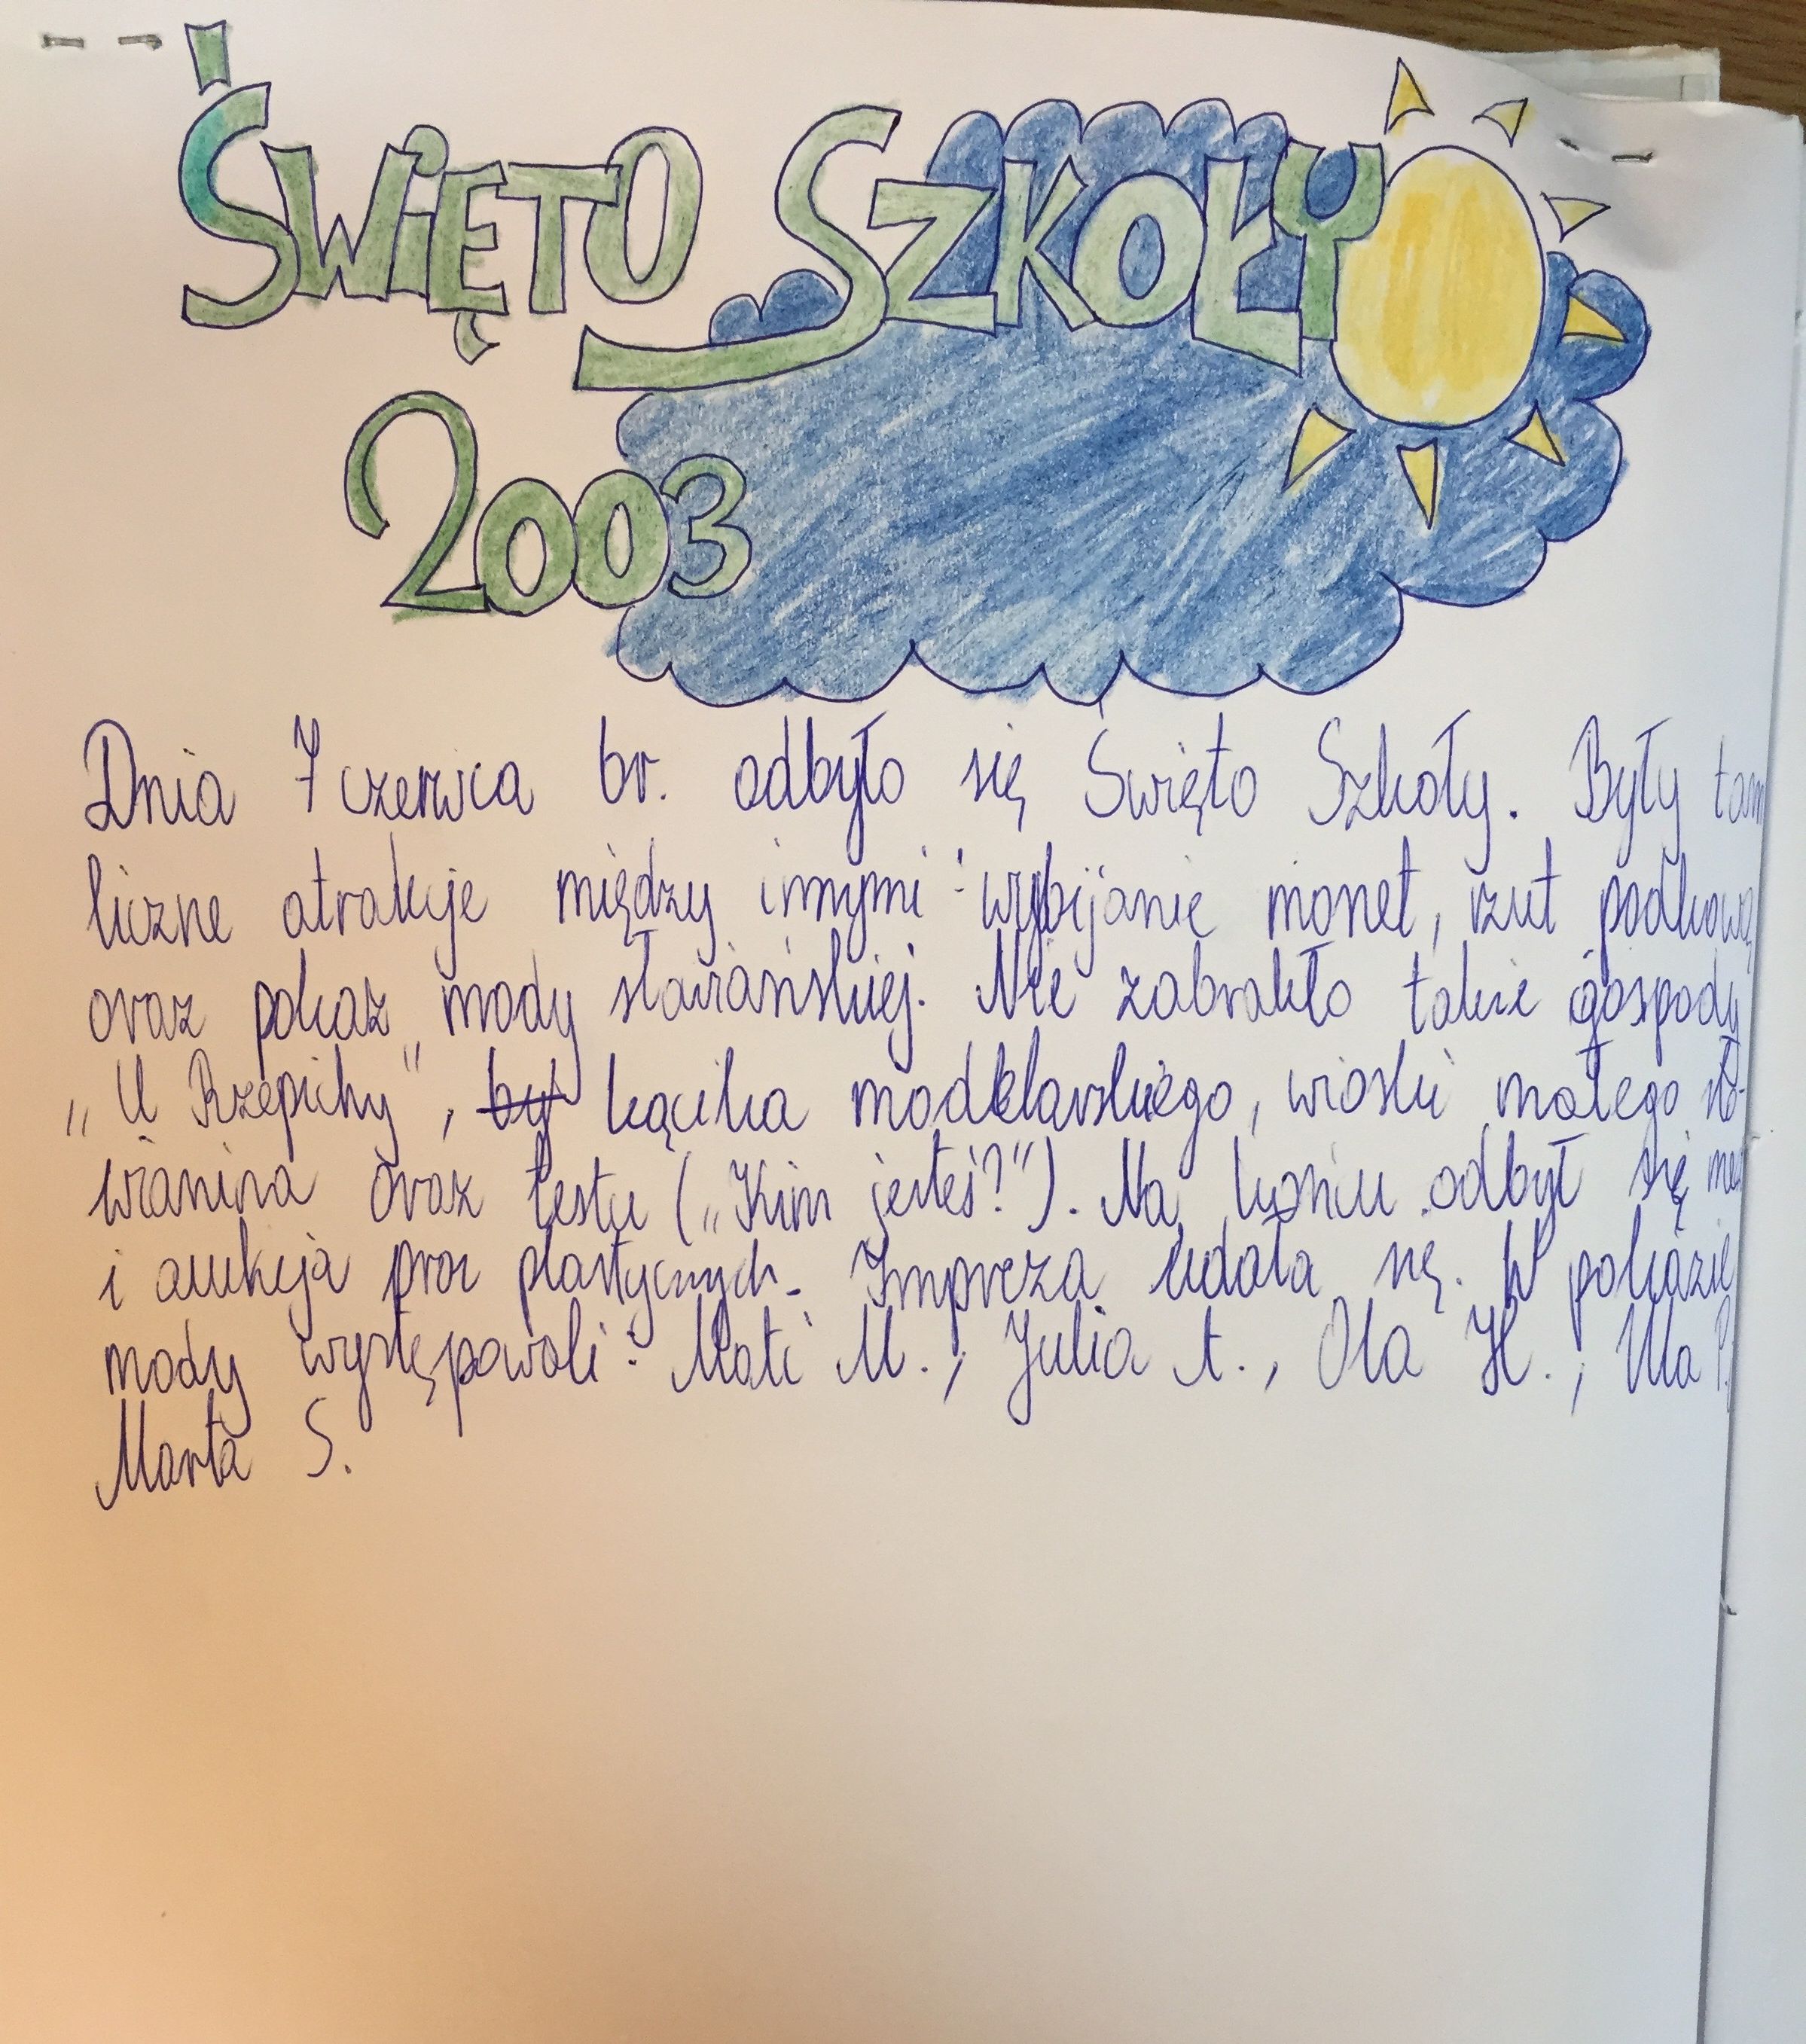 ŚWIĘTO SZKOŁY
2003
Dnia 7 czerwca br. odbyło się Święto Szkoły. Były tam
liczne atrakcje między innymi: wybijanie monet, rzut podkową
oraz pokaz mody słowiańskiej. Nie zabrakło także gospody
„U Rzepichy”, był kącika modelarskiego, wioski małego sło-
wianina oraz testu („Kim jesteś?”). Na końcu odbył się
i aukcja prac plastycznych. Impreza udała się. W pokazie
mody występowali: Mati M., Julia A., Ola H., Ula P.,
Marta S.